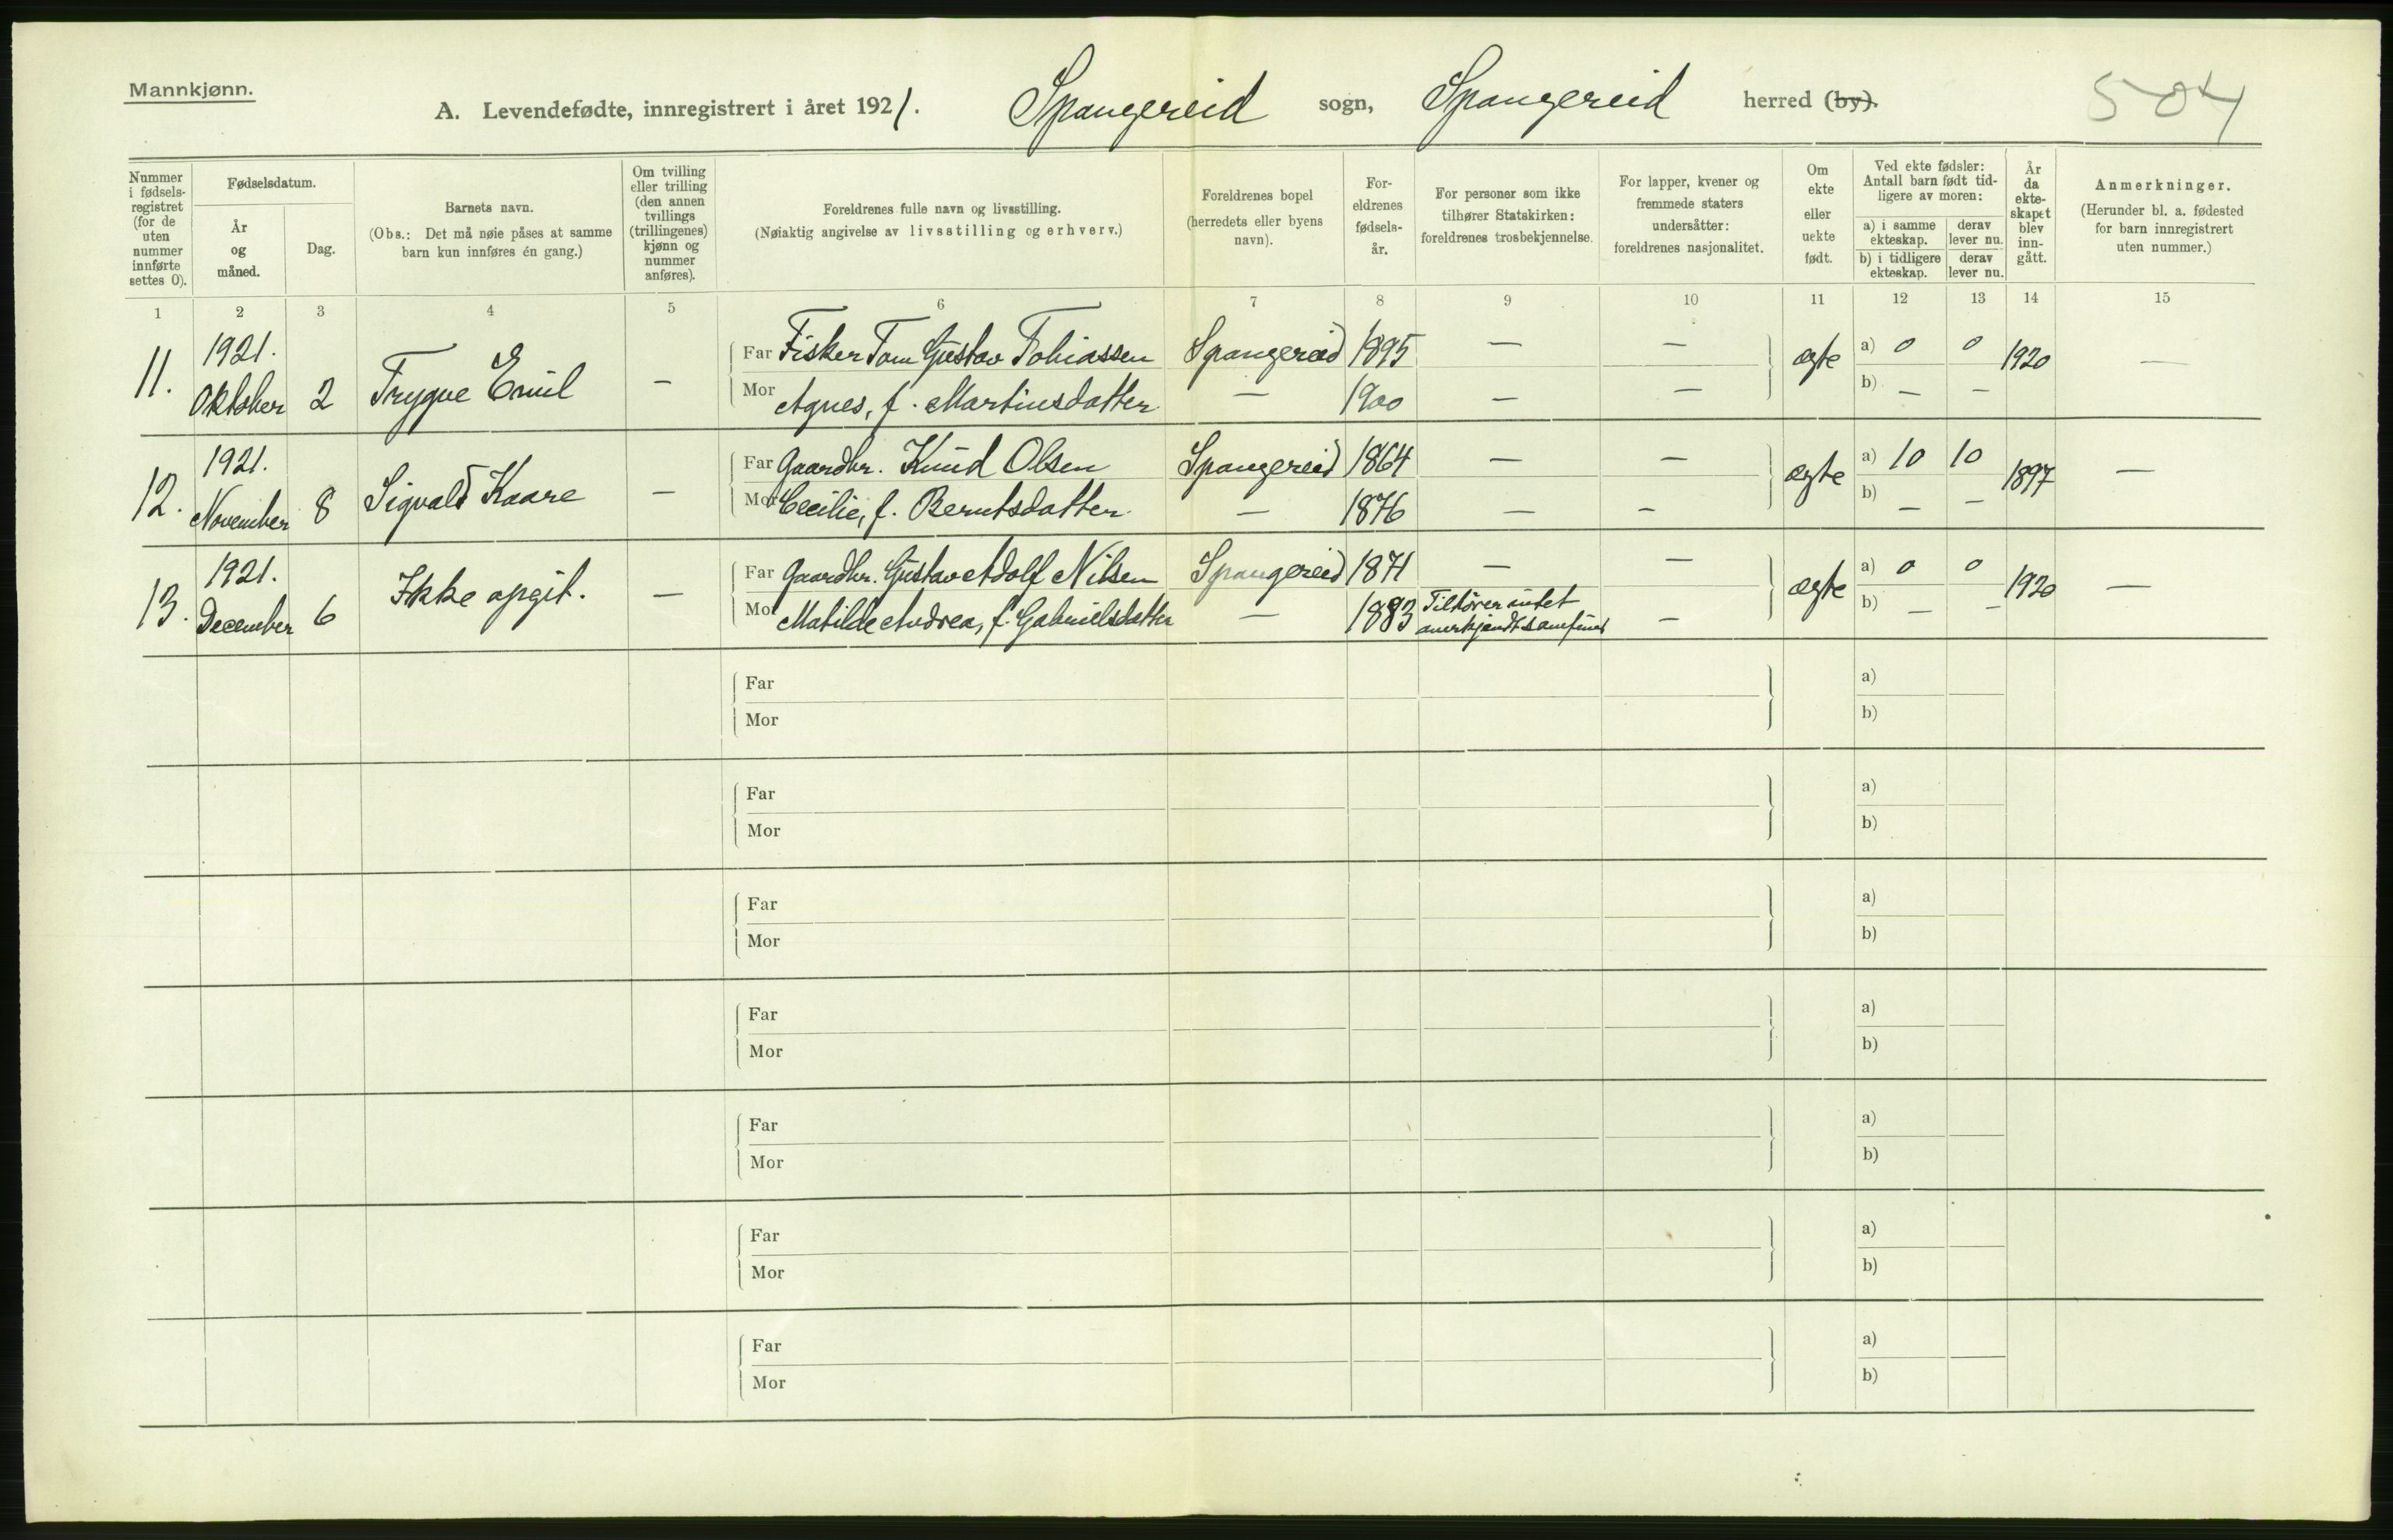 Mannkjønn.
A. Levendefødte, innregistrert i året 1921. Spangereid sogn, Spangereid herred (by). 504
Nummer i fødselsregistret (for de uten nummer innførte settes 0).
Fødselsdatum.
År og måned.
Dag.
Barnets navn.
(Obs.: Det må nøie påses at samme barn kun innføres én gang.)
Om tvilling eller trilling (den annen tvillings (trillingenes) kjønn og nummer anføres).
Foreldrenes fulle navn og livsstilling.
(Nøiaktig angivelse av livsstilling og erhverv.)
Foreldrenes bopel (herredets eller byens navn).
Foreldrenes fødselsår.
For personer som ikke tilhører Statskirken: foreldrenes trosbekjennelse.
For lapper, kvener og fremmede staters undersåtter: foreldrenes nasjonalitet.
Om ekte eller uekte født.
Ved ekte fødsler: Antall barn født tidligere av moren:
a) i samme ekteskap. derav lever nu.
b) i tidligere ekteskap. derav lever nu.
År da ekteskapet blev inngått.
Anmerkninger.
(Herunder bl. a. fødested for barn innregistrert uten nummer.)
1 2 3 4 5 6 7 8 9 10 11 12 13 14 15
11. 1921. Oktober 2 Trygve Emil —
Far Fisker Tom Gustav Tobiassen Spangereid 1895 — — ægte a) 0 0 1920 —
Mor Agnes, f. Martinsdatter — 1900 — — b) — —
12. 1921. November 8 Sigvald Kaare —
Far Gaardbr. Knud Olsen Spangereid 1864 — — ægte a) 10 10 1897 —
Mor Cecilie, f. Berntsdatter — 1876 — — b) — —
13. 1921. December 6 Ikke opgit. —
Far Gaardbr. Gustav Adolf Nilsen Spangereid 1871 — — ægte a) 0 0 1920 —
Mor Matilde Andrea, f. Gabrielsdatter — 1883 Tilhører intet anerkjendt samfund — b) — —
Far a)
Mor b)
Far a)
Mor b)
Far a)
Mor b)
Far a)
Mor b)
Far a)
Mor b)
Far a)
Mor b)
Far a)
Mor b)